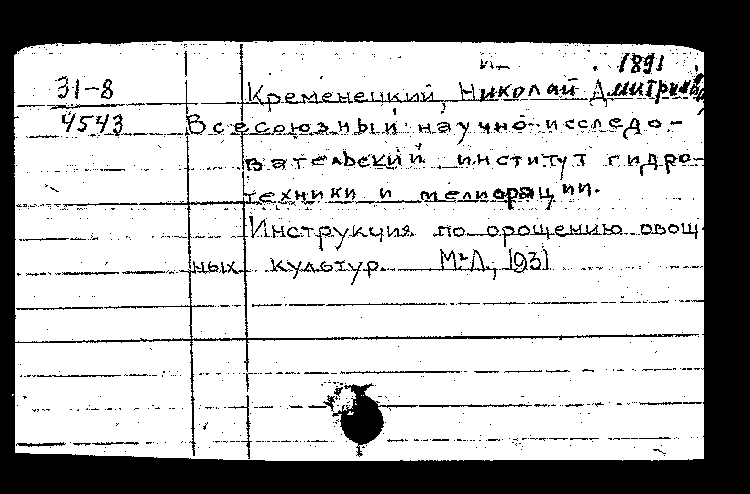 1891
31-8 Кременецкий, Николай Дмитриевич
4543 Всесоюзный научно-исследо-
вательский институт гидро-
техники и мелиорации.
Инструкция по орошению овощ-
ных культур. М-Л., 1931